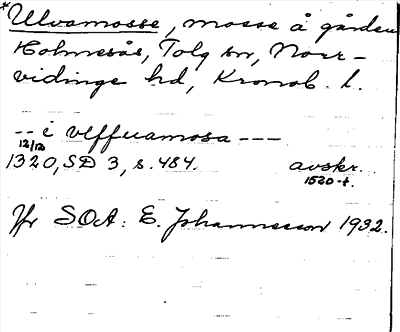 *Ulvamosse, mosse å gården
Holmesås, Tolg sn, Norr-
vidinge hd, Kronob. l.
-- i vlffuamosa ---
12/12
1320, SD 3, s. 484. avskr.
1520-t.
Jfr SOA: E. Johannesson 1932.